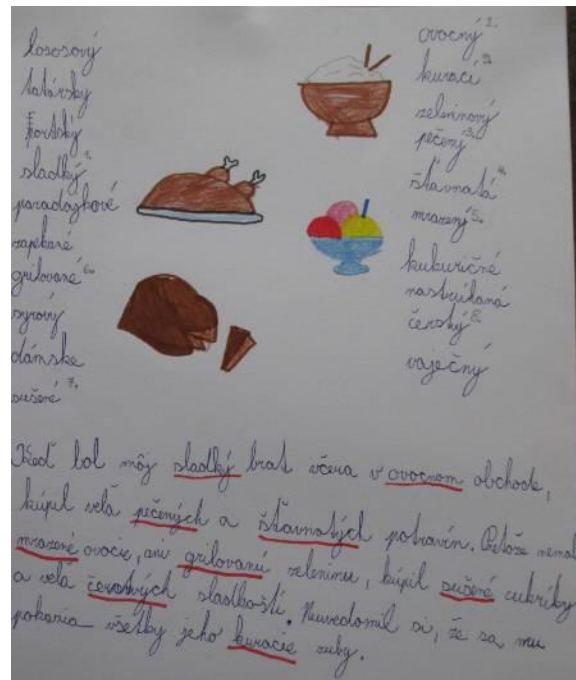 lososový
tatársky
sladký 1.
paradajkové
zapekané
grilované 6.
syrový
dámske
sušené 7.
ovocný 2.
kurací 9.
zeleninový
pečený 3.
šťavnatá 4.
mrazený 5.
kukuričné
nastrúhaná
čerstvý 8.
vaječný
Keď bol môj sladký brat včera v ovocnom obchode,
kúpil veľa pečených a šťavnatých potravín. Pretože nemali
mrazené ovocie, ani grilovanú zeleninu, kúpil sušené cukríky
a veľa čerstvých sladkostí. Neuvedomil si, že sa mu
pokazia všetky jeho kuracie zuby.